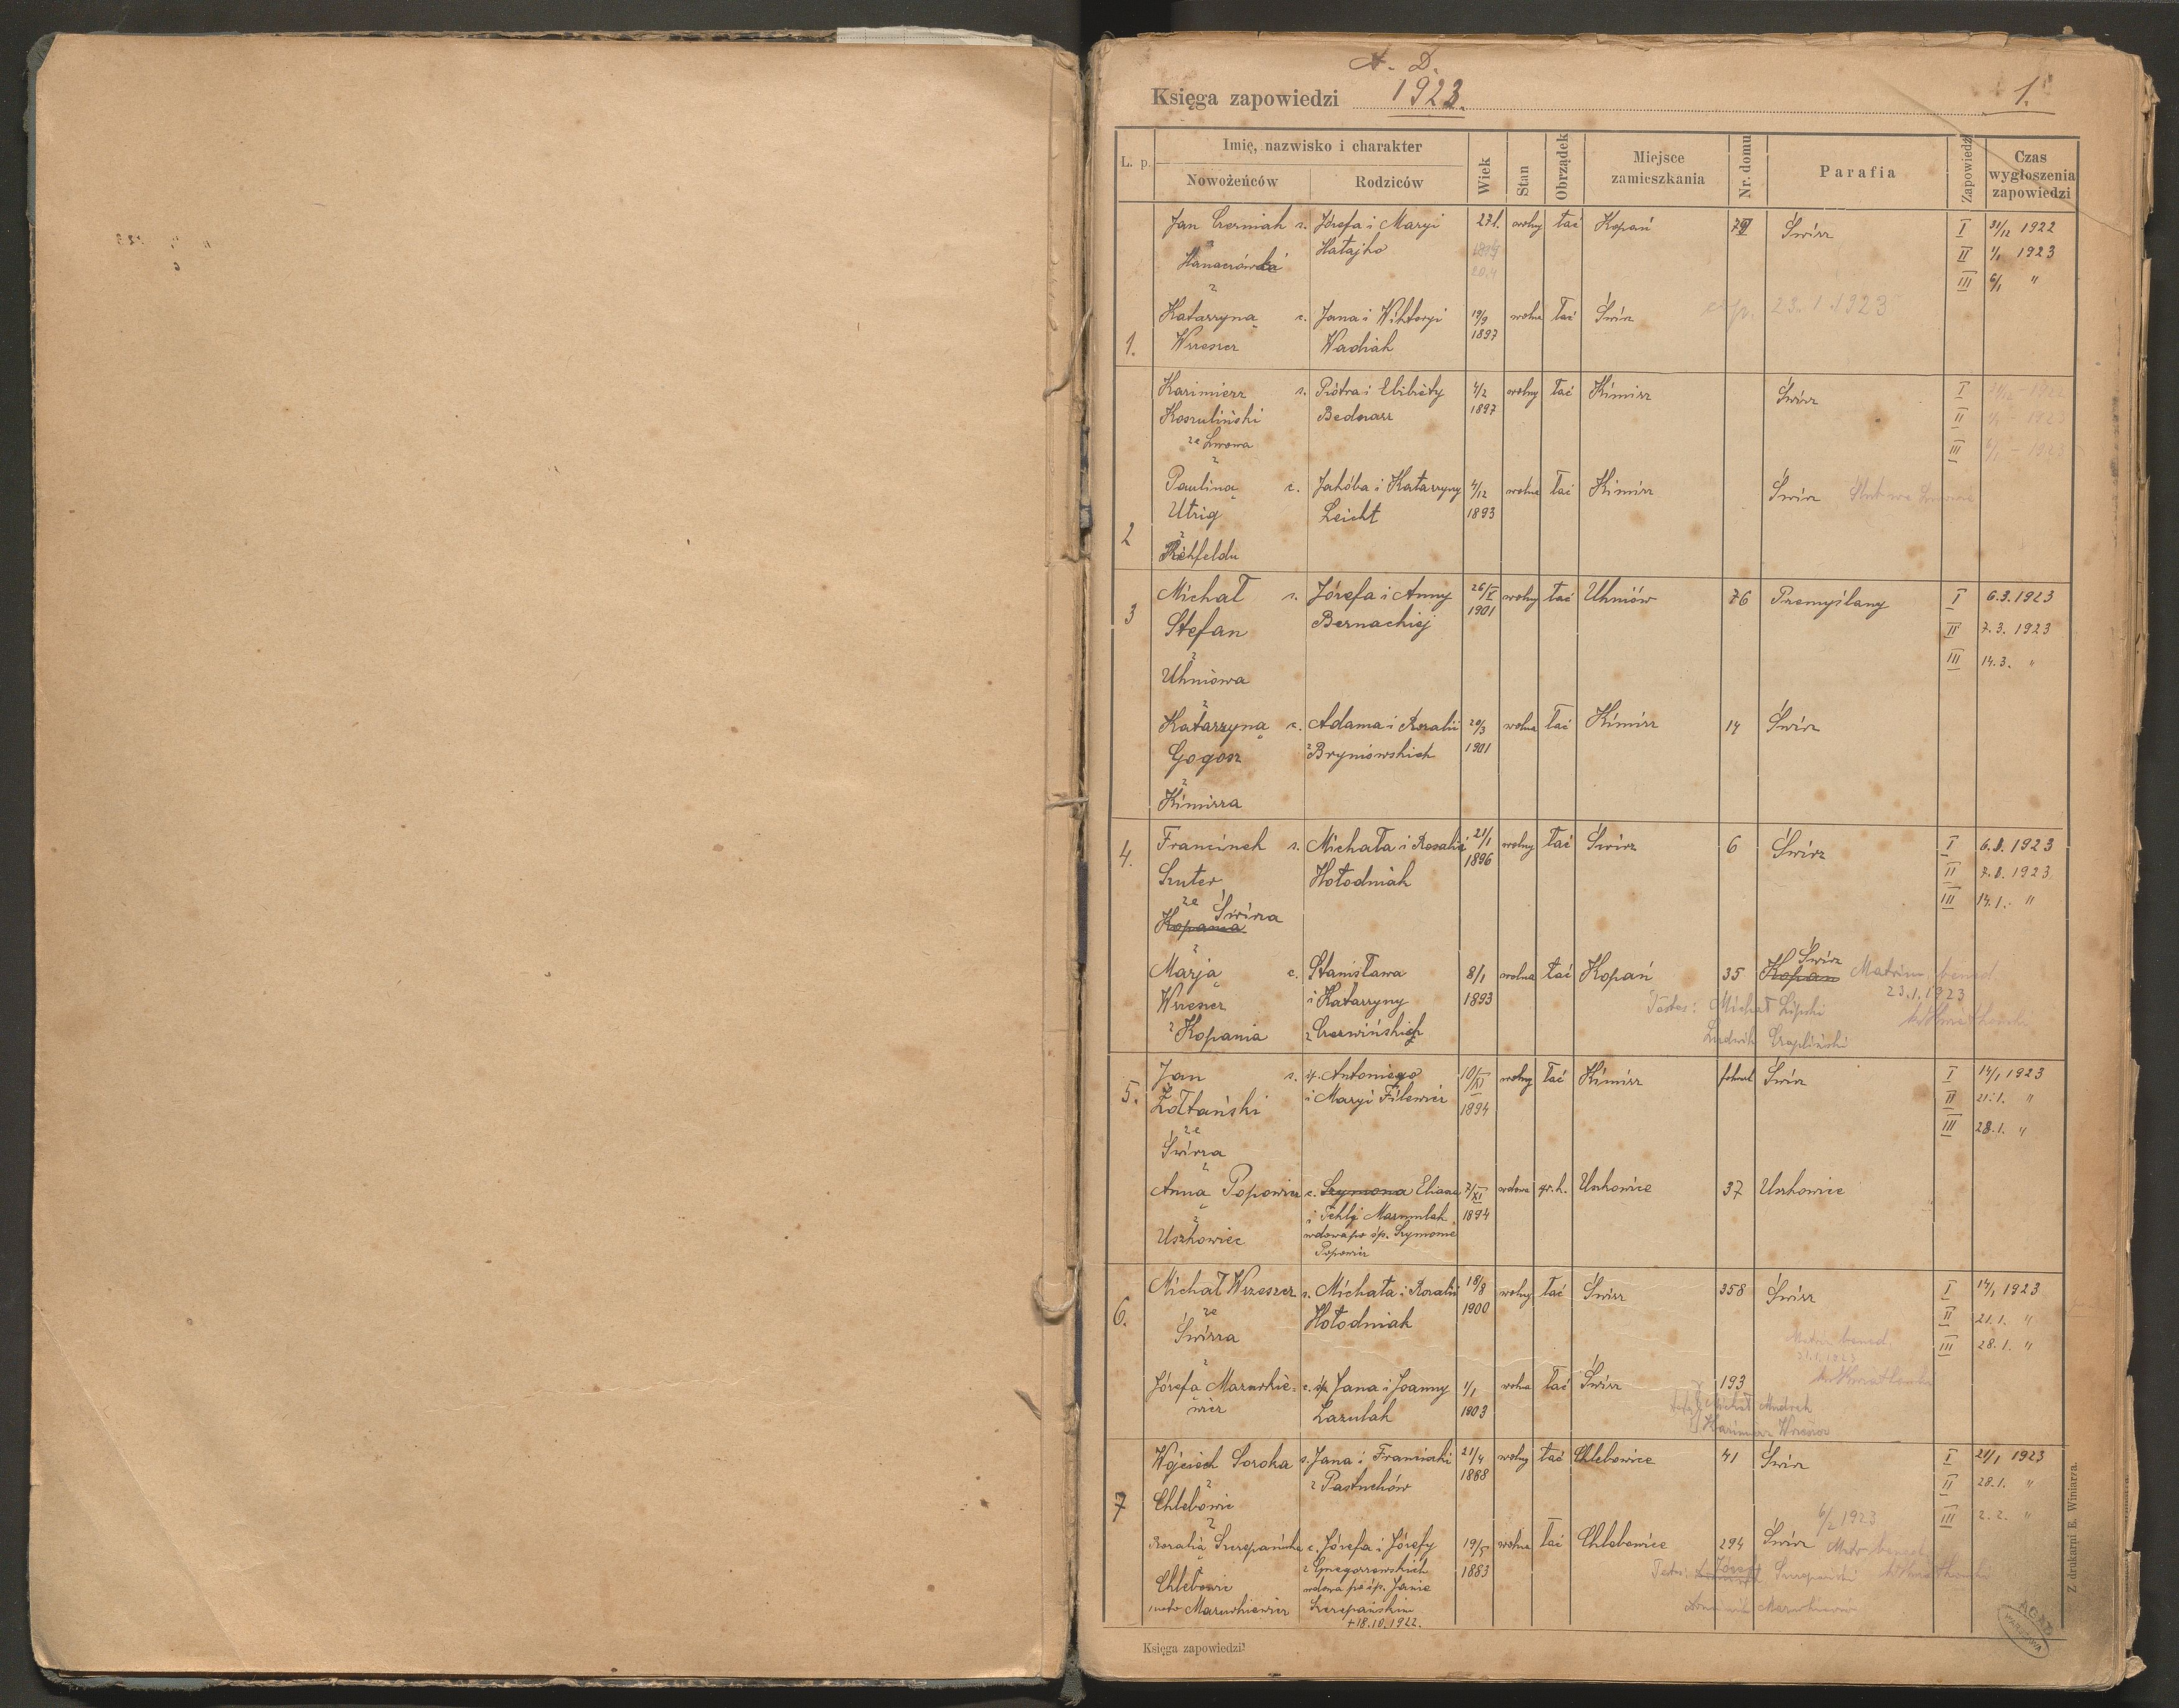 A. D.
Księga zapowiedzi 1923. 1.
L. p.
Imię, nazwisko i charakter
Nowożeńców
Rodziców
Wiek
Stan
Obrządek
Miejsce zamieszkania
Nr. domu
Parafia
Zapowiedź
Czas wygłoszenia zapowiedzi
1.
Jan Czerniak s. Józefa i Maryi 27 l. wolny łać Kopań Świrz I 31/12 1922
z Hatajko II 1/1 1923
III 6/1 "
Katarzyna c. Jana i Wiktoryi 19/9 wolna łać Świrz 23.1.1923
Wrzeszcz Wadiak 1897
2
Kazimierz s. Piotra i Elżbiety 4/2 wolny łać Kimirz Świrz I 31/12 1922
Koszuliński Bednarz 1897 II 1/1 1923
ze Lwowa III 6/1 - 1923
z
Paulina c. Jakóba i Katarzyny 4/12 wolna łać Kimirz Świrz Ślub we Lwowie
Utrig Leicht 1893
z
Rehfeldu
3
Michał s. Józefa i Anny 26/V wolny łać Uhniów 76 Przemyślany I 6.3.1923
Stefan Bernackiej 1901 II 7.3.1923
z III 14.3. "
Uhniowa
z
Katarzyna c. Adama i Rozalii 20/3 wolna łać Kimirz 14 Świrz
Gogosz z Bryniowskich 1901
z
Kimirza
4.
Franciszek s. Michała i Rozalii 21/1 wolny łać Świrz 6 Świrz I 6.1.1923
Szuter Hołodniak 1896 II 7.1.1923
ze Świrza III 14.1. "
Kopania
z
Marja c. Stanisława 8/1 wolna łać Kopań 35 Świrz Kopań Matrim. bened.
Wrzeszcz i Katarzyny 1893 23.1.1923
z Kopania z Czerwińskich Testes: Michał Lipski
Ludwik Czapliński
5.
Jan s. śp. Antoniego 10/XI wolny łać Kimirz folwark Świrz I 14/1 1923
Żółtański i Maryi Filewicz 1894 II 21.1. "
ze III 28.1. "
Świrza
z
Anna Popowicz c. Szymona Eliasza 7/XI wdowa gr. k. Uszkowice 37 Uszkowice
z i Tekli Mazurulak 1894
Uszkowiec wdowa po śp. Szymonie
Popowicz
6.
Michał Wrzeszcz s. Michała i Rozalii 18/8 wolny łać Świrz 358 Świrz I 14/1 1923
ze Hołodniak 1900 II 21.1. "
Świrza Matr. bened. III 28.1. "
z 31.1.1923
Józefa Mazurkie- c. śp. Jana i Joanny 1/1 wolna łać Świrz 193
wicz Łazulak 1903 Michał Mudrak
Kazimierz Wrzeszcz
7
Wojciech Soroka s. Jana i Franciszki 21/4 wolny łać Chlebowice 41 Świrz I 21/1 1923
z z Pastuchów 1888 II 28.1. "
Chlebowic 6/2 1923 III 2.2. "
z
Rozalia Szczepańska c. Józefa i Józefy 19/5 wolna łać Chlebowice 294 Świrz Matr. bened.
z Grzegorzewskich 1883 Testes: Józef Szczepański
Chlebowic wdowa po śp. Janie
nata Mazurkiewicz Szczepańskim
+18.10.1922.
Księga zapowiedzi
Z drukarni E. Winiarza.
AGAD
WARSZAWA